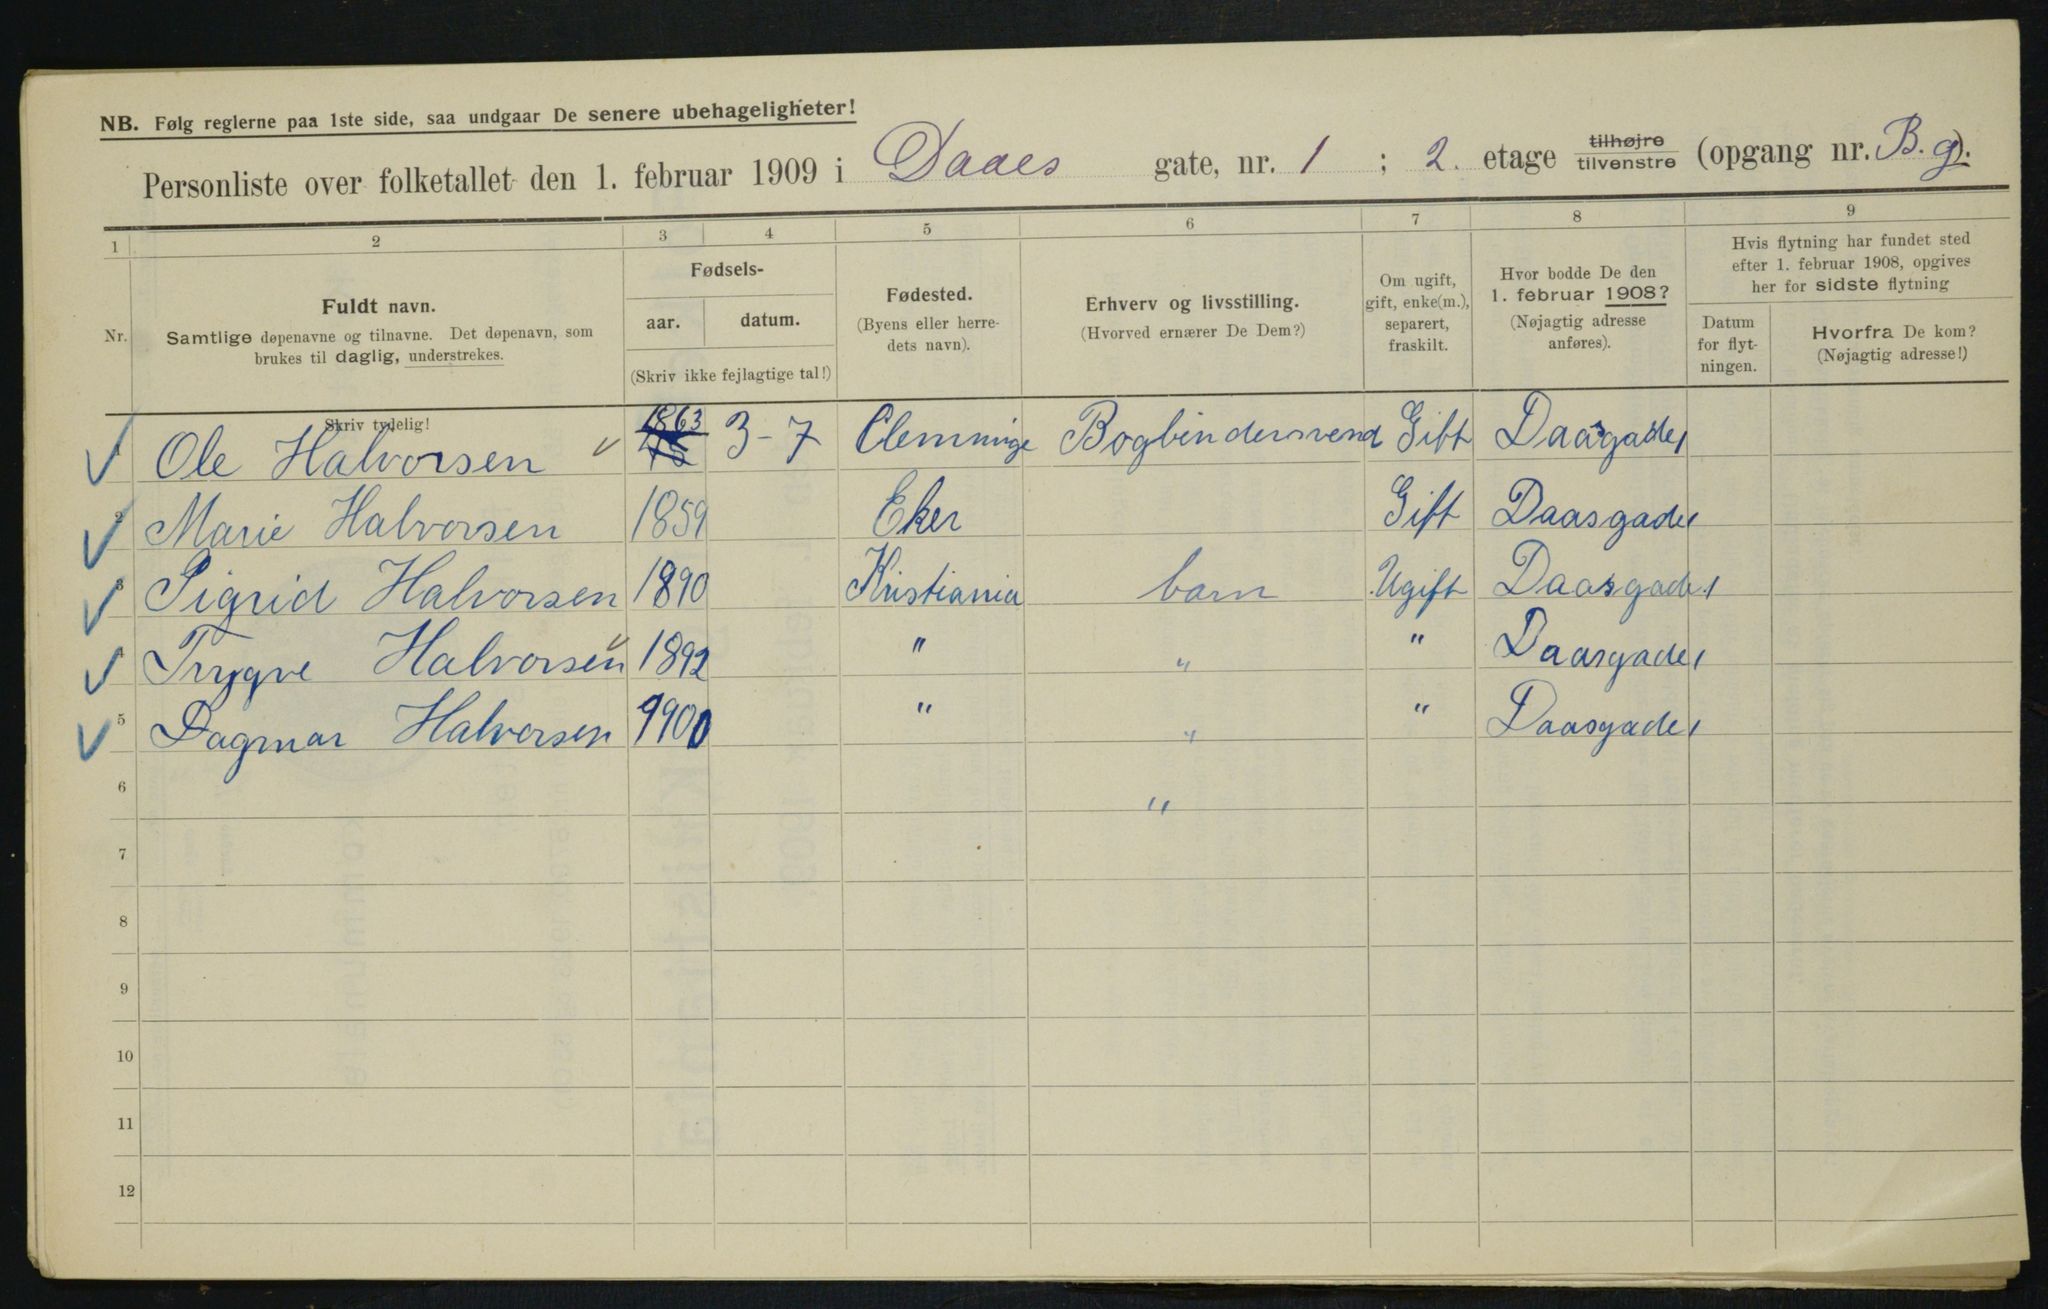 NB. Følg reglerne paa 1ste side, saa undgaar De senere ubehageligheter!
Personliste over folketallet den 1. februar 1909 i Daaes gate, nr. 1 ; 2. etage tilhøjre tilvenstre (opgang nr. B. g).
1 2 3 4 5 6 7 8 9
Nr.
Fuldt navn.
Samtlige døpenavne og tilnavne. Det døpenavn, som
brukes til daglig, understrekes.
Fødsels-
aar. datum.
(Skriv ikke fejlagtige tal!)
Fødested.
(Byens eller herre-
dets navn).
Erhverv og livsstilling.
(Hvorved ernærer De Dem?)
Om ugift,
gift, enke(m.),
separert,
fraskilt.
Hvor bodde De den
1. februar 1908?
(Nøjagtig adresse
anføres).
Hvis flytning har fundet sted
efter 1. februar 1908, opgives
her for sidste flytning
Datum
for flyt-
ningen.
Hvorfra De kom?
(Nøjagtig adresse!)
Skriv tydelig!
1 Ole Halvorsen 1863 3-7 Clemminge Bogbindersvend Gift Daasgade 1
2 Marie Halvorsen 1859 Eker Gift Daasgade 1
3 Sigrid Halvorsen 1890 Kristiania barn Ugift Daasgade 1
4 Trygve Halvorsen 1892 " " " Daasgade 1
5 Dagmar Halvorsen 1900 " " " Daasgade 1
6 "
7
8
9
10
11
12